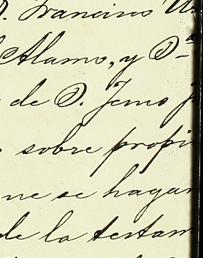 D. Francisco
Alamo, y Dª
de D. Jemo
sobre propi
ne se hagan
de la testam